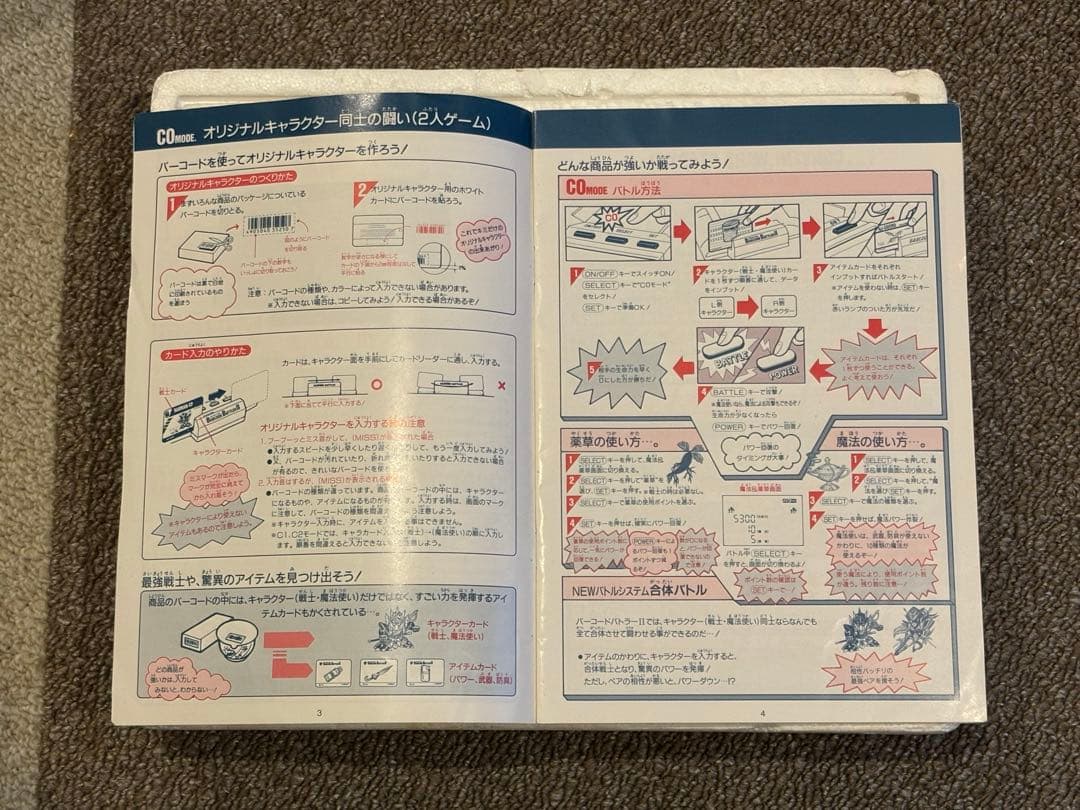 CO MODE. オリジナルキャラクター同士の闘い(2人ゲーム)
バーコードを使ってオリジナルキャラクターを作ろう!
オリジナルキャラクターのつくりかた
1 まずいろんな商品のパッケージについている
バーコードを切りとる。
バーコードの下の数字も
いっしょに切り取っておこう!
2 オリジナルキャラクター用のホワイト
カードにバーコードを貼ろう。
これでキミだけの
オリジナルキャラクター
の出来あがり!
注意:バーコードの種類や、カラーによって入力できない場合があります。
※入力できない場合は、コピーしてみよう!入力できる場合があるぞ!
カード入力のやりかた
カードは、キャラクター面を手前にしてカードリーダーに通し、入力する。
戦士カード
キャラクターカード
※下面に当てて平行に入力する!
オリジナルキャラクターを入力する時の注意
1.ブーブーッとミス音がして、(MISS)が表示された場合
●入力するスピードを少し早くしたり遅くしたりして、もう一度入力してみよう!
●又、バーコードが汚れていたり、折れ
があるので、きれいなバーコードを使
2.入力音はするが、(MISS)が表示される
●バーコードの種類が違っています。商品バーコードの中には、キャラクター
になるものや、アイテムになるものが
に注意して、バーコードの種類を間違え
※キャラクター入力時に、アイテムを入
※C1.C2モードでは、キャラカード
ミスマークが出たら、
マークが完全に消えて
から入れ直そう!
※キャラクターにより使えない
アイテムもあるので注意しよう。
最強戦士や、驚異のアイテムを見つけ出そう!
商品のバーコードの中には、キャラクター(戦士・魔法使い)だけではなく、すごい力を発揮するアイ
テムカードもかくされている…。
キャラクターカード
(戦士、魔法使い)
アイテムカード
(パワー、武器、防具)
どの商品が
強いかは、入力して
みないと、わからない…!
3
どんな商品が強いか戦ってみよう!
CO MODE バトル方法
1 (ON/OFF)キーでスイッチON!
(SELECT)キーで"C0モード"
をセレクト!
(SET)キーで準備OK!
2 キャラクター(戦士・魔法使い)カー
ドを1枚ずつ順番に通して、データ
をインプット!
L側
キャラクター
R側
キャラクター
3 アイテムカードをそれぞれ
インプットすればバトルスタート!
※アイテムを使わない時は、(SET)キー
を押します。
赤いランプのついた方が先攻だ!
アイテムカードは、それぞれ
1枚ずつ使うことができる。
よく考えて使おう!
BATTLE
POWER
4 (BATTLE)キーで攻撃!
※魔法使いなら、魔法による攻撃もできるぞ!
生命力が少なくなったら
(POWER)キーでパワー回復!
パワー回復の
タイミングが大事!
5 相手の生命力を早く
0にした方が勝ちだ!
薬草の使い方…。
1 (SELECT)キーを押して、魔法&
薬草画面に切り換える。
2 (SELECT)キーを押して"薬草"を
選び、(SET)キーを押す。※戦士の時は必要なし。
3 (SELECT)キーで薬草の使用ポイントを選ぶ。
4 (SET)キーを押せば、確実にパワー回復!
魔法&薬草画面
5300
10
5
バトル中(SELECT)キー
を押すと、画面が切り換わるよ!
ポイント数の確認は
(SET)キーで…!
魔法の使い方…。
1 (SELECT)キーを押して、魔法
&薬草画面に切り換える。
2 (SELECT)キーを押して、"魔
法"を選び(SET)キーを押す。
3 (SELECT)キーで魔法の種類を選ぶ。
4 (SET)キーを押せば、魔法パワー炸裂!
魔法使いは、武器、防具が使えない
かわりに、10種類の魔法が
使えるぞ〜!
NEWバトルシステム合体バトル
バーコードバトラーⅡでは、キャラクター(戦士・魔法使い)同士ならなんでも
全て合体させて闘わせる事ができるのだ…!
●アイテムのかわりに、キャラクターを入力すると、
合体戦士となり、驚異のパワーを発揮!
ただし、ペアの相性が悪いと、パワーダウン…!?
相性バッチリの
最強ペアを探そう!
4